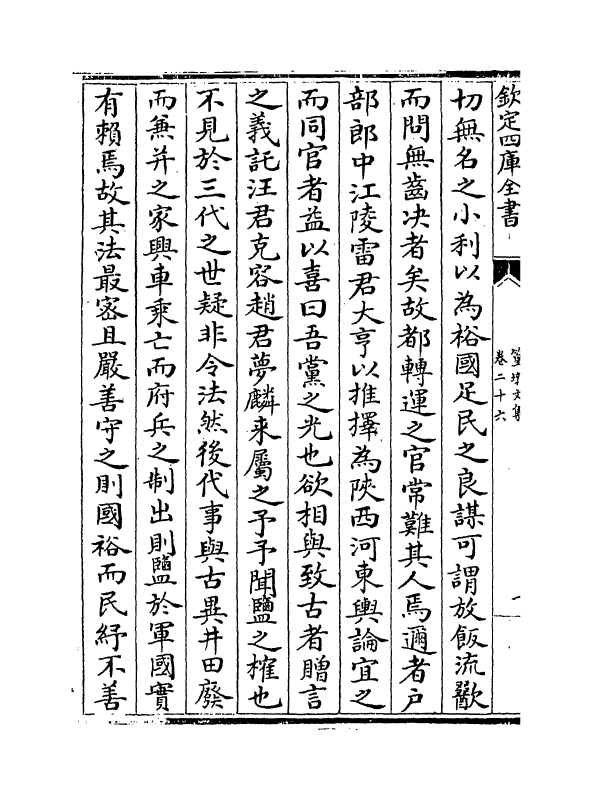 欽定四庫全書
卷二十六
切無名之小利以為裕國足民之良謀可謂放飯流歠
而問無齒决者矣故都轉運之官常難其人焉邇者户
部郎中江陵雷君大亨以推擇為陜西河東輿論宜之
而同官者益以喜曰吾黨之光也欲相與致古者贈言
之義託汪君克容趙君夢麟来屬之予予聞鹽之榷也
不見於三代之世疑非令法然後代事與古異井田廢
而兼并之家興車乘亡而府兵之制出則鹽於軍國實
有賴焉故其法最宻且嚴善守之則國裕而民紓不善